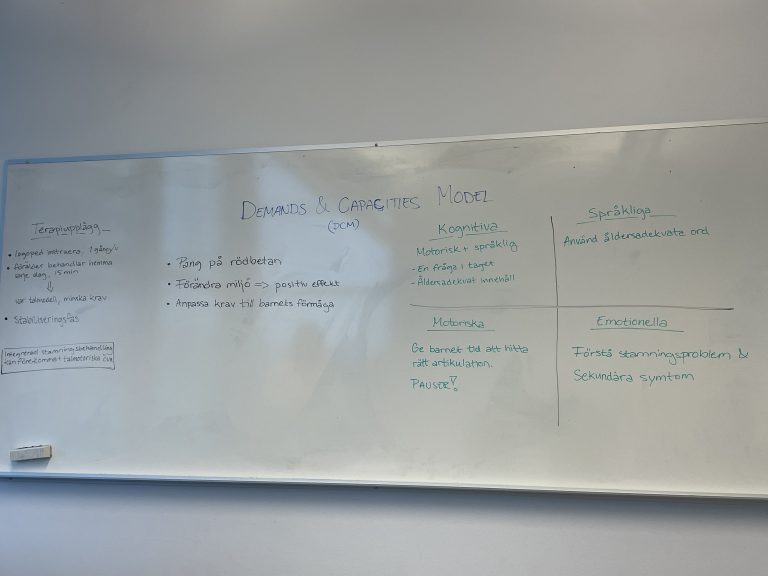 DEMANDS & CAPACITIES MODEL
(DCM)
Terapiupplägg
• Logoped instruera, 1 gång/v
• Förälder behandlar hemma
varje dag, 15 min
⇓
var talmodell, minska krav
• Stabiliseringsfas
Integrerad stamningsbehandling
kan förekomma talmotoriska
• Pang på rödbetan
• Förändra miljö => positiv effekt
• Anpassa krav till barnets förmåga
Kognitiva
Motorisk + språklig
- En fråga i taget
- Åldersadekvat innehåll
Språkliga
Använd åldersadekvata ord
Motoriska
Ge barnet tid att hitta
rätt artikulation.
PAUSER!
Emotionella
Förstå stamningsproblem &
Sekundära symtom